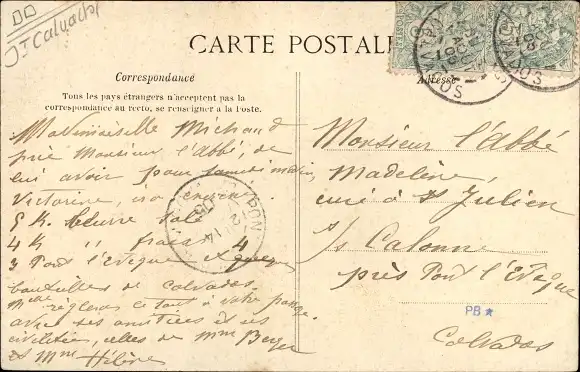 St Calvados
CARTE POSTALE
Correspondance
Tous les pays étrangers n'acceptent pas la
correspondance au recto, se renseigner à la Poste.
Mademoiselle Michaud
prie Monsieur l'Abbé, de
lui avoir pour samedi matin,
Victorine,
5 K. beurre salé
4 K " frais 4
3 Pont l'Evêque
bouteilles de calvados.
Mlle règlera le tout à votre
avec ses amitiés et ses
civilités, celles de Mme Berger
et Mme Hélène
Adresse
Monsieur l'abbé
Madeleine,
curé à St Julien
s/s Calonne
près Pont l'Evêque
PB
Calvados